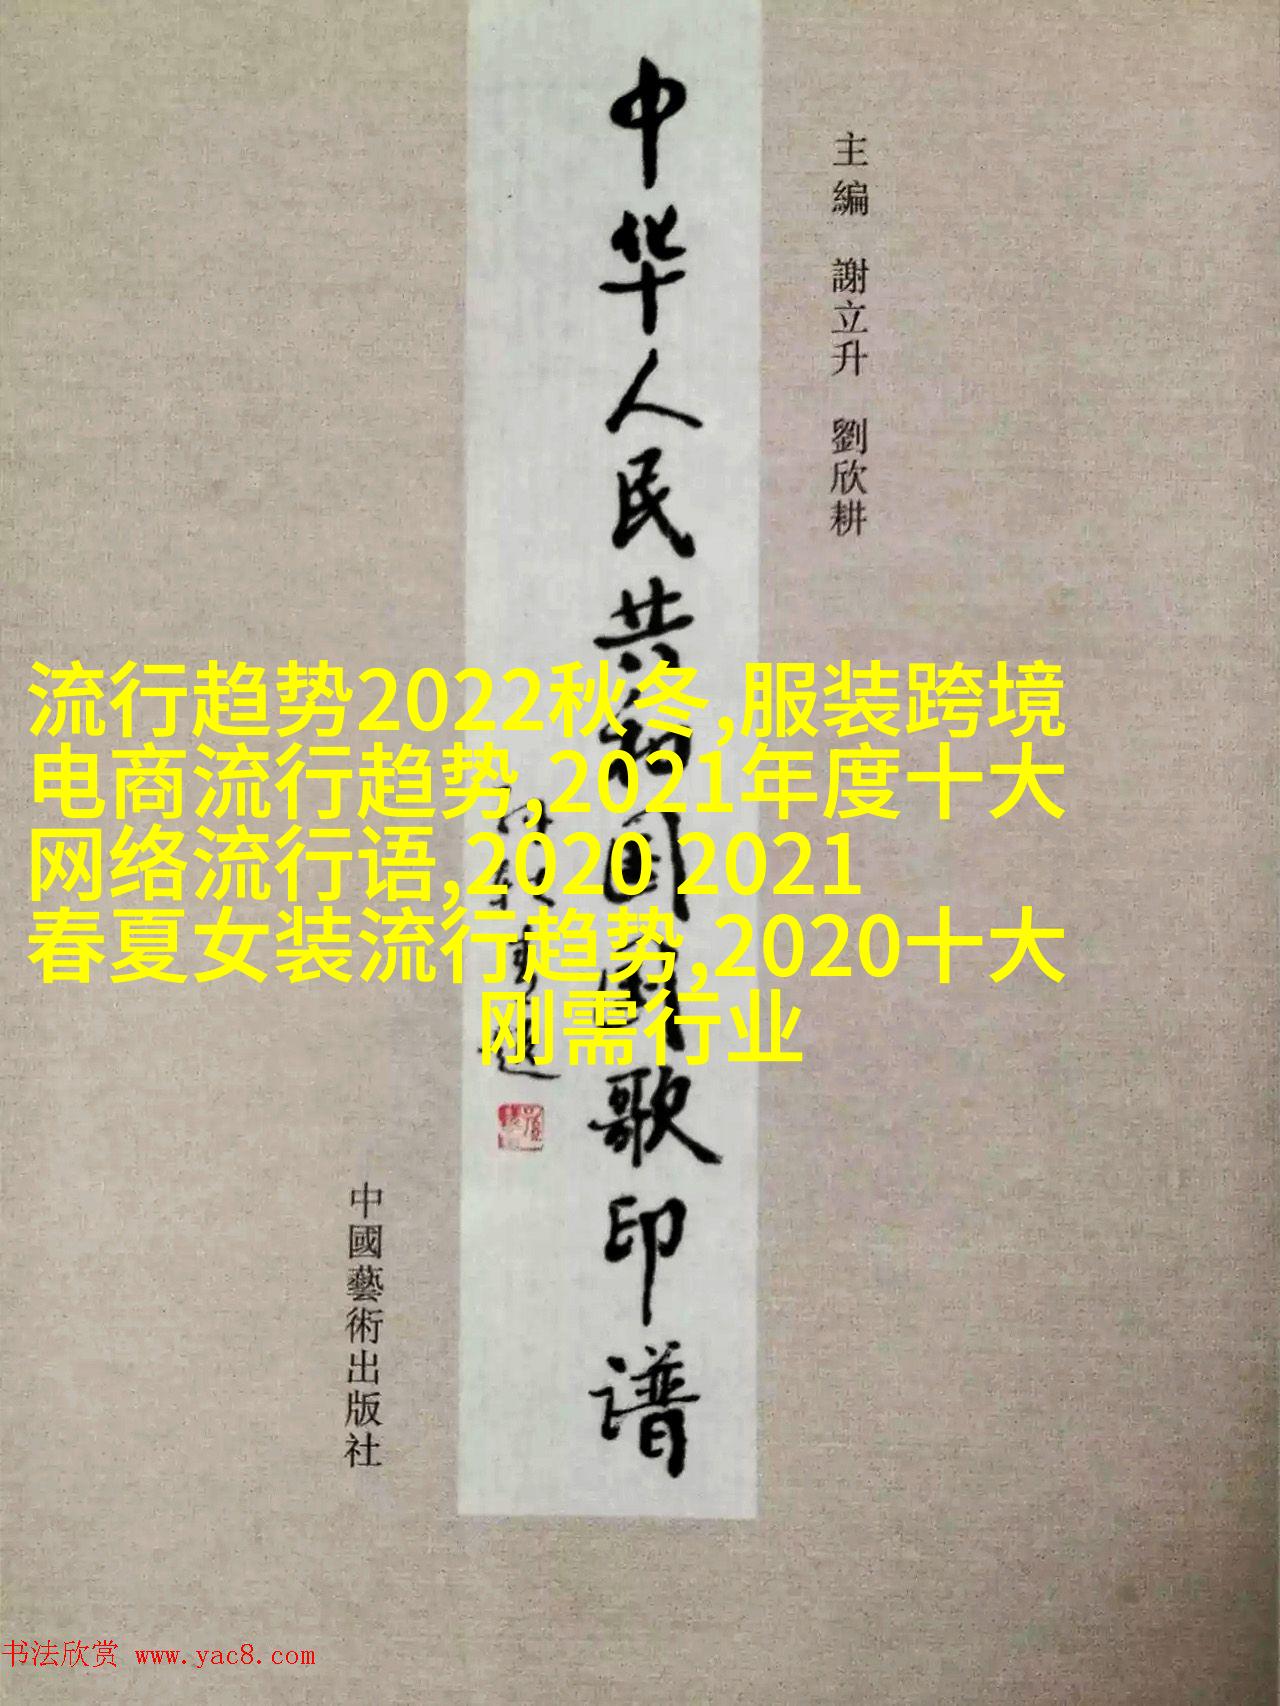 主編 謝立升 劉欣耕
中华人民共和国国歌印谱
中國藝術出版社
流行趋势2022秋冬,服装跨境
电商流行趋势,2021年度十大
网络流行语,2020 2021
春夏女装流行趋势,2020十大
刚需行业
书法欣赏 www.yac8.com